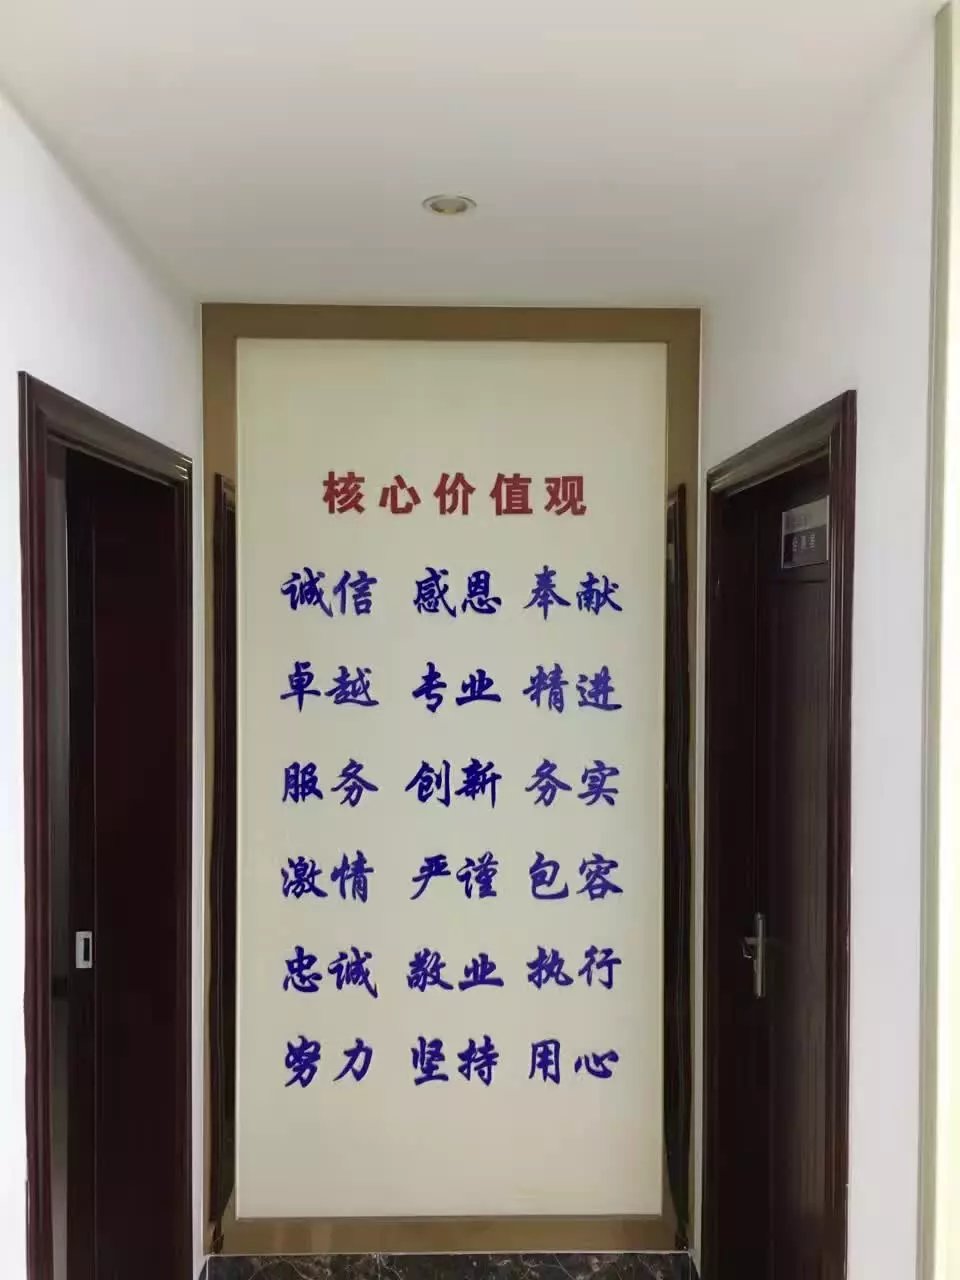 核心价值观
诚信 感恩 奉献
卓越 专业 精进
服务 创新 务实
激情 严谨 包容
忠诚 敬业 执行
努力 坚持 用心